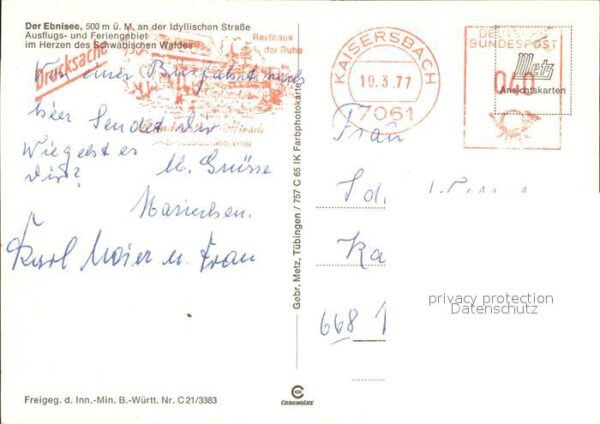 Der Ebnisee, 500 m ü. M. an der Idyllischen Straße
Ausflugs- und Feriengebiet
im Herzen des Schwäbischen Waldes
Drucksache
Rasthaus
der Ruhe
KAISERSBACH
19.3.77
7061
DEUTSCHE
BUNDESPOST
040
Metz
Ansichtskarten
Von einer Busfahrt nach
hier sendet Dir
Wie geht es
Dir?
lb. Grüsse
Mariechen.
Karl Maier u. Frau
Gebr. Metz, Tübingen / 757 C 65 IK Farbphotokarte
Frau
Ka
668
privacy protection
Datenschutz
Freigeg. d. Inn.-Min. B.-Württ. Nr. C 21/3383
CHROMOLUX